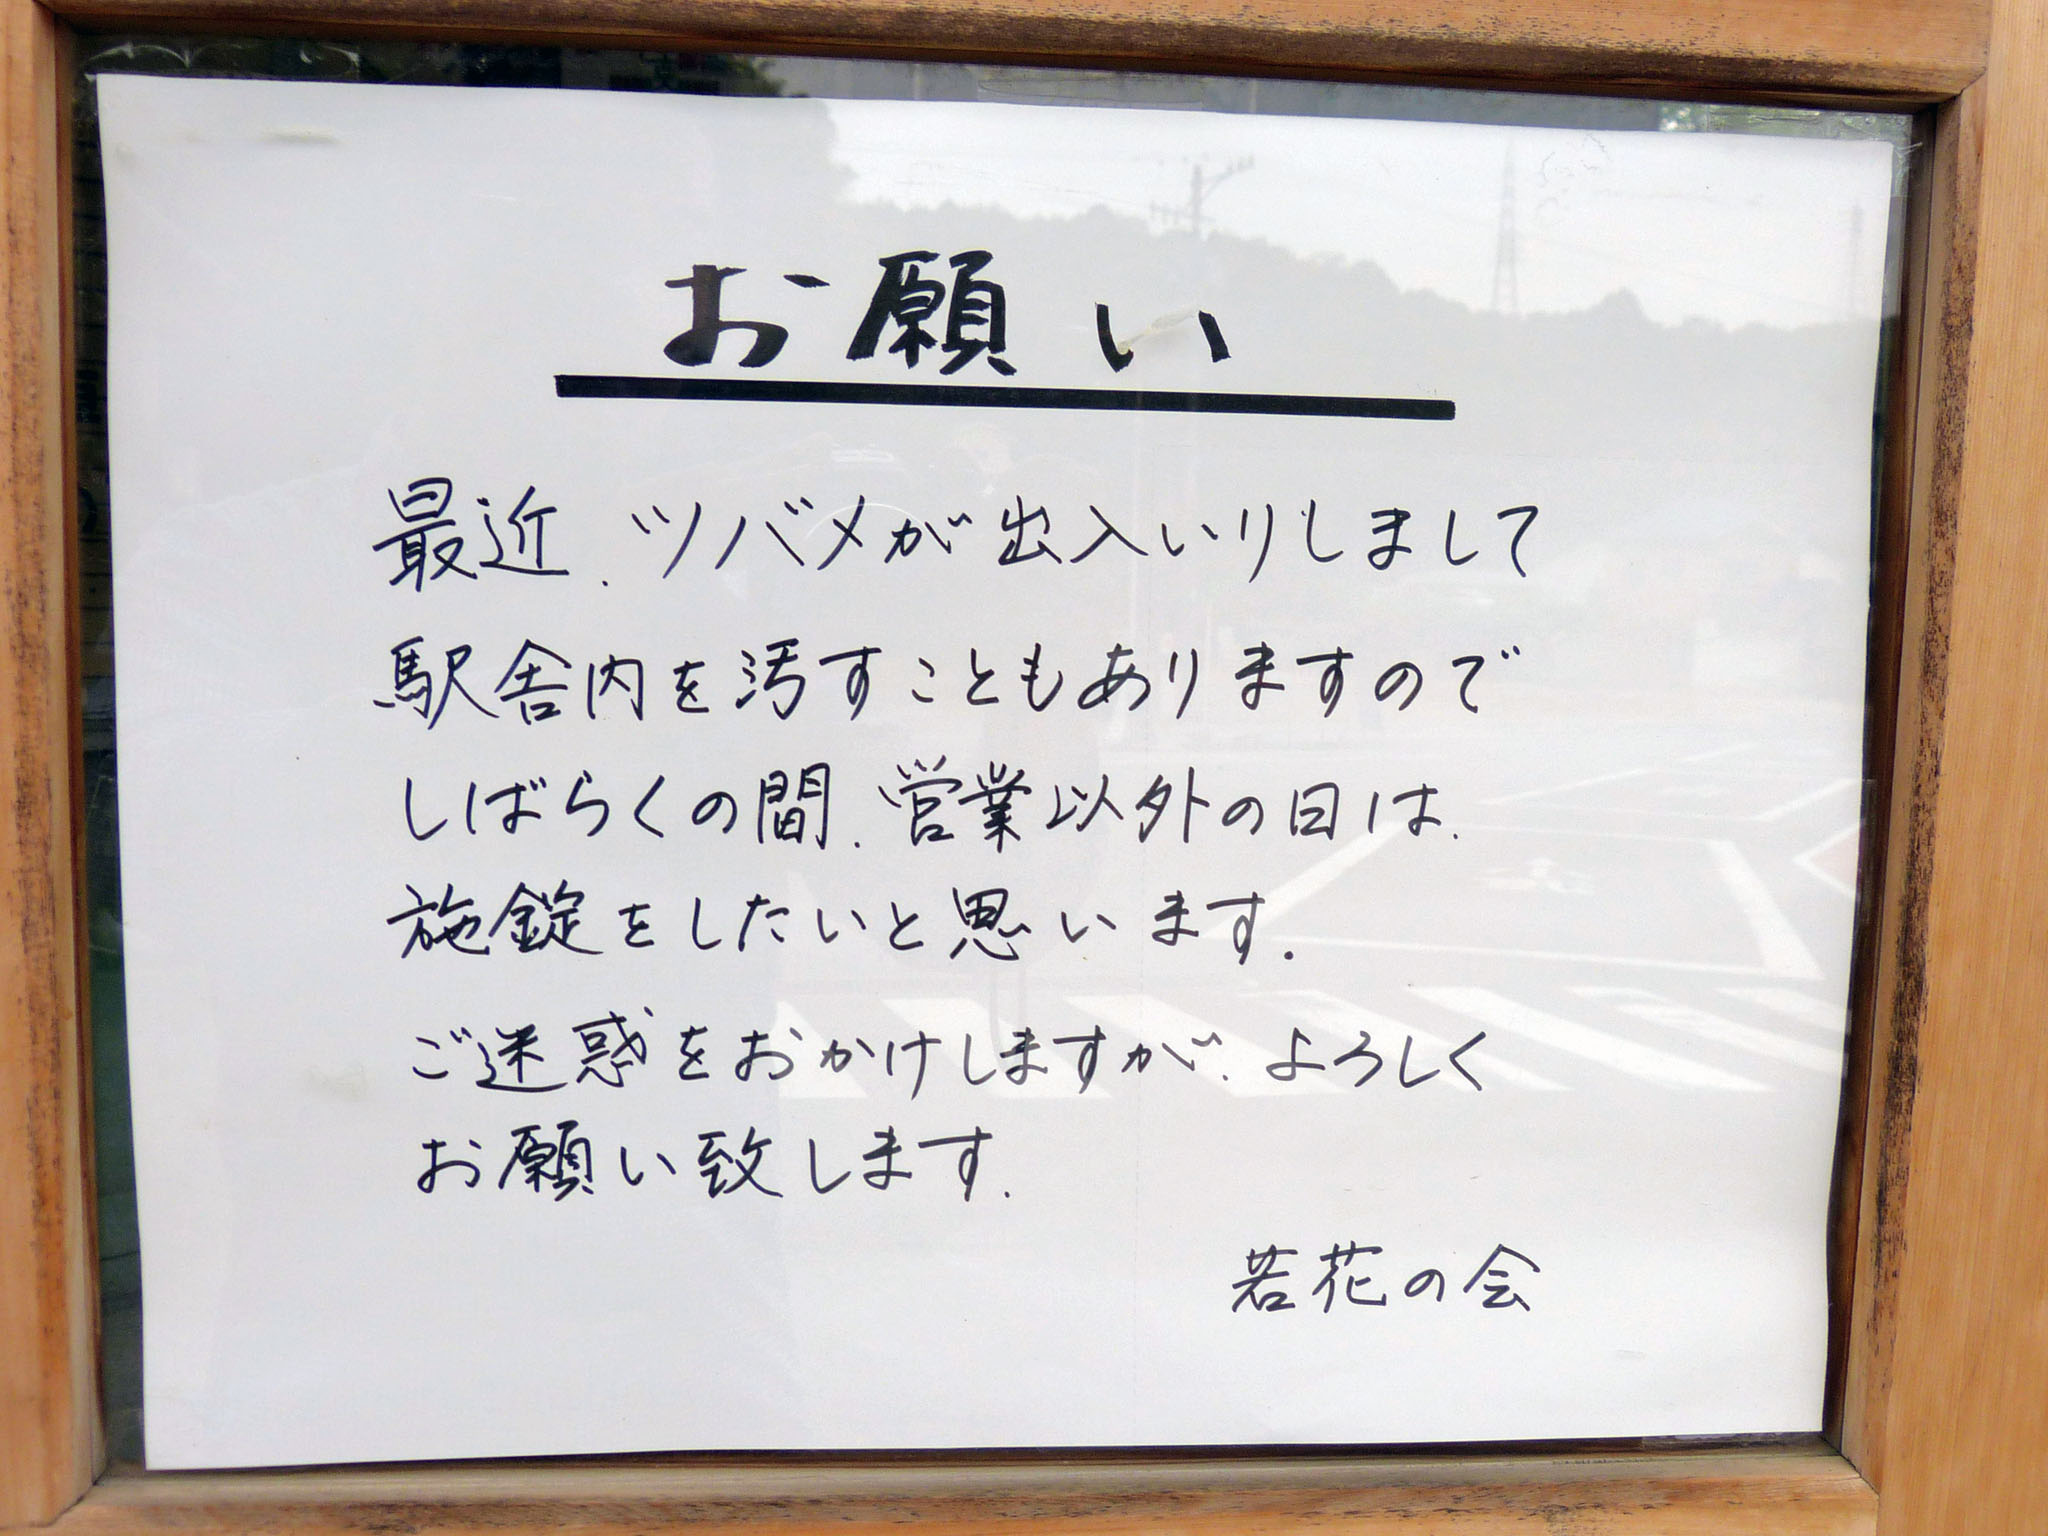 お願い
最近、ツバメが出入いりしまして
駅舎内を汚すこともありますので
しばらくの間、営業以外の日は、
施錠をしたいと思います。
ご迷惑をおかけしますが、よろしく
お願い致します。
若花の会